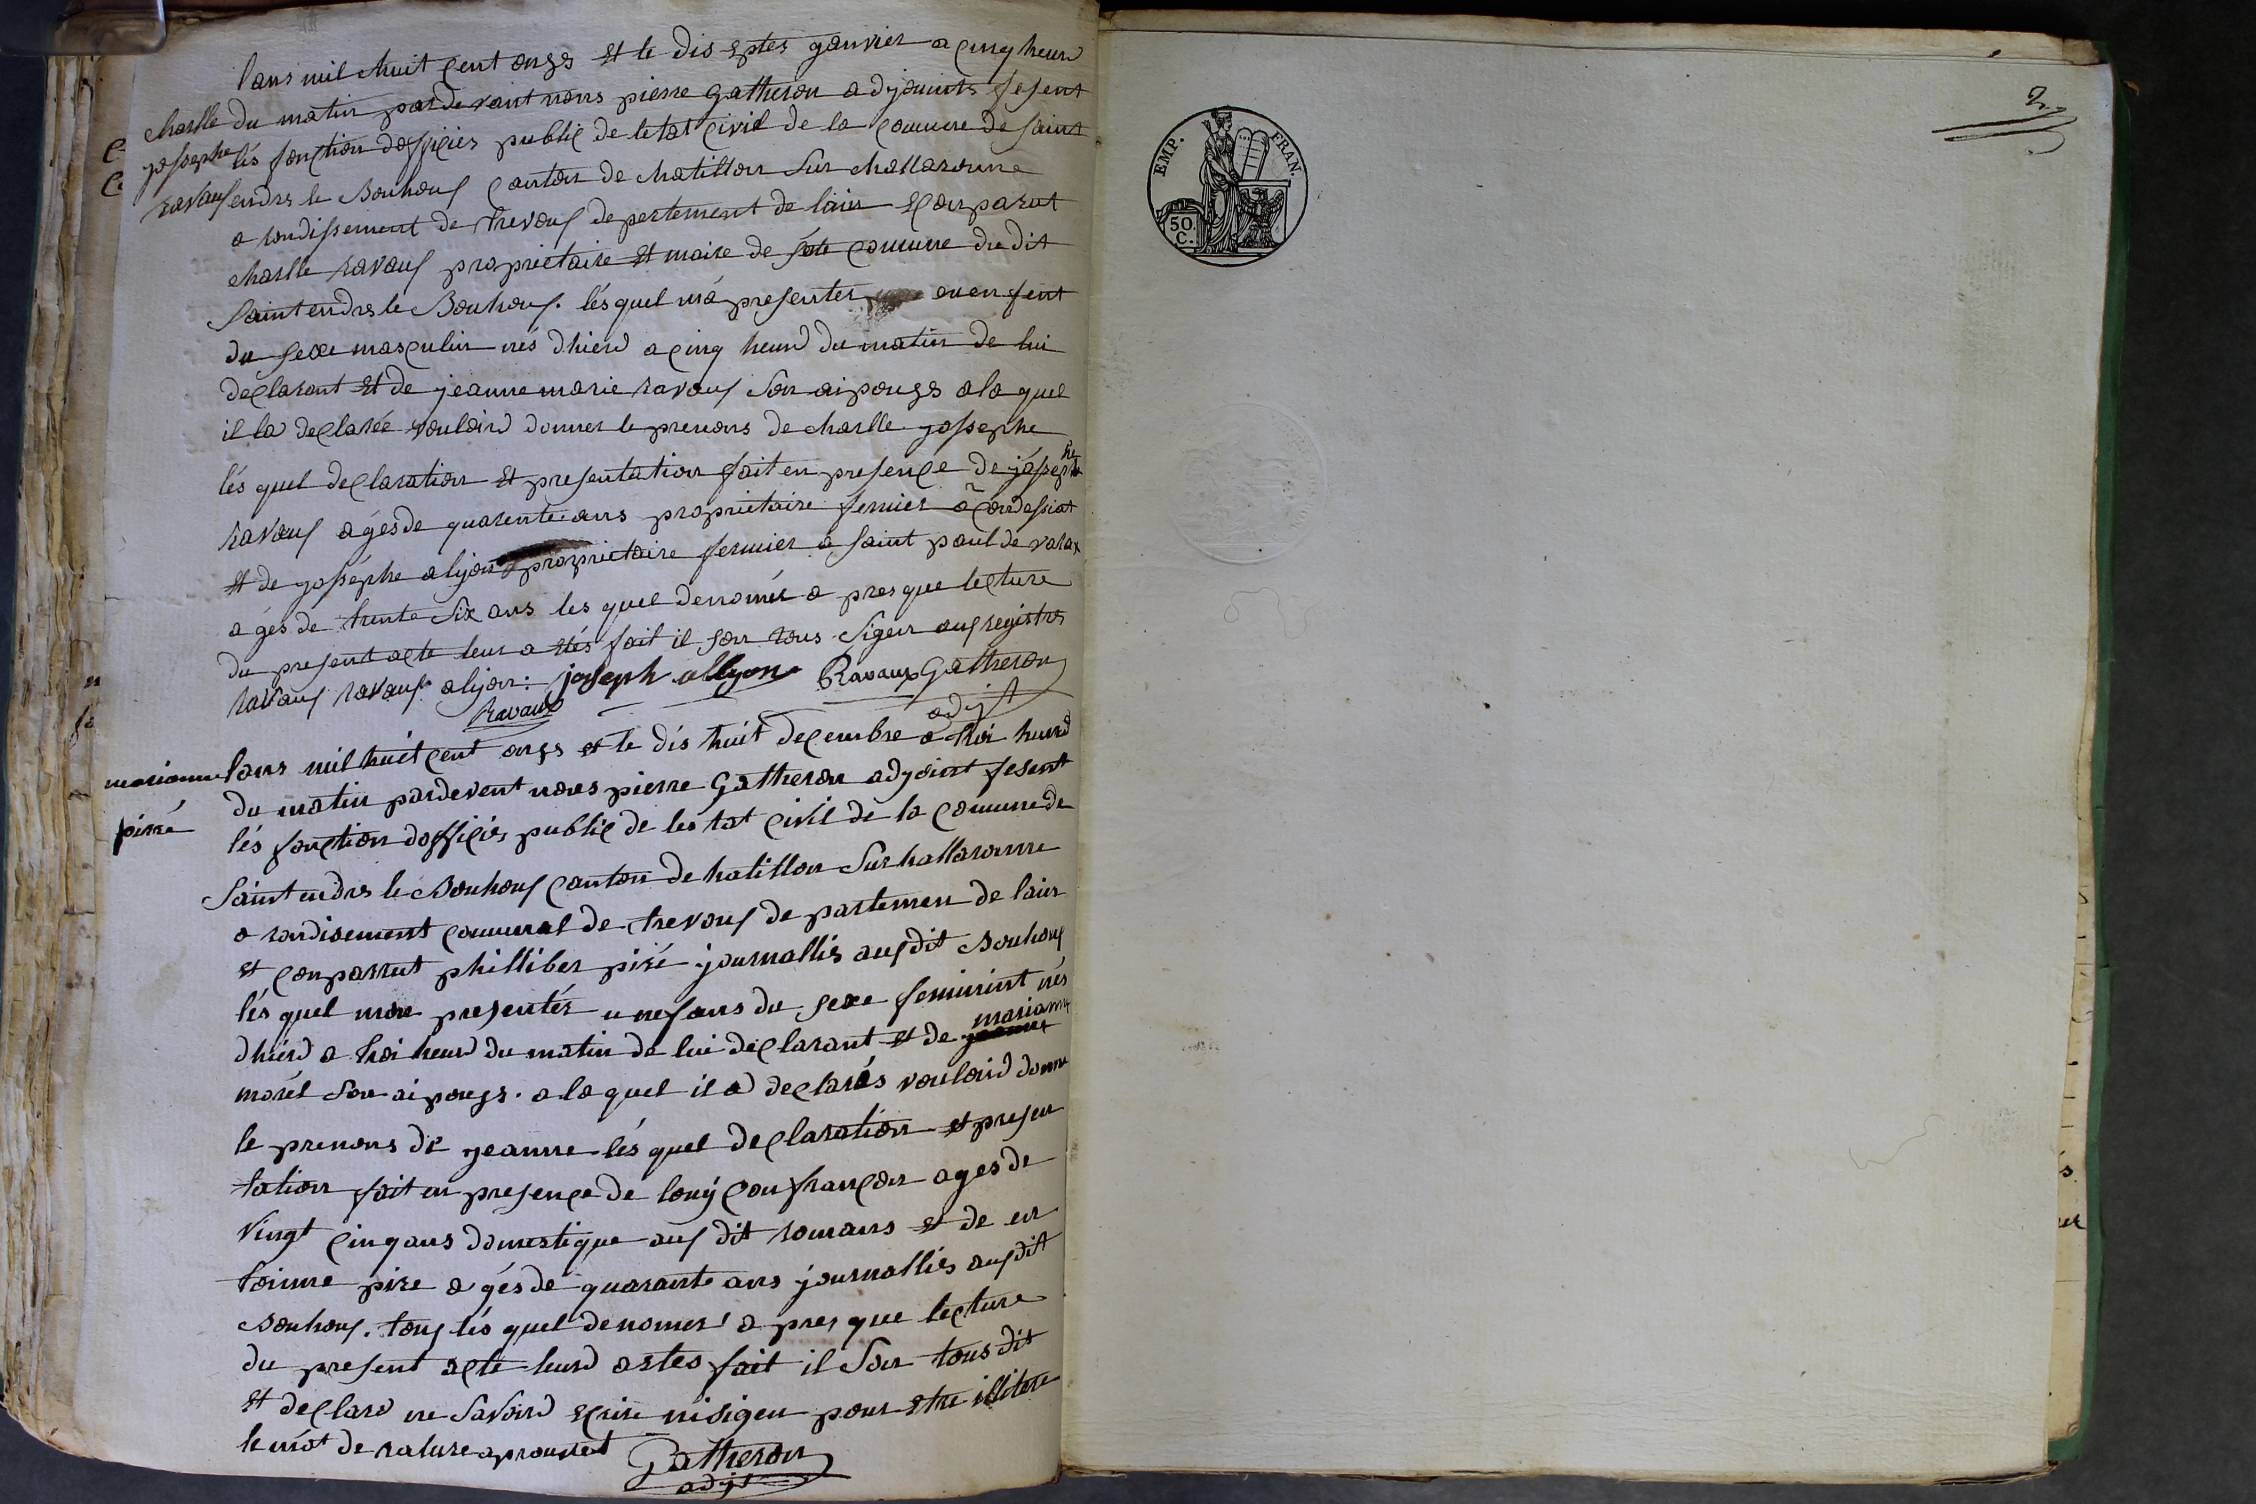 lans mil huit cent onzes et le dis sptes ganvier a cinq heurd
charlle du matin pardevaint nous pierre Gatheron adjouints fesent
josephe lés fonction dofficier public de letat civil de la comune de saint
ravauf endrs le Bouhouf canton de chatillon sur challaronne
arondissement de trevouf depertement de lain et conparut
charlle ravauf proprietaire et maire de sete comune dudit
saint endrs le Bouhouf. lésquel má presenter un enfent
du sexe masculin nés dhierd a cinq heurd du matin de lui
declarant et de jeanne marie ravauf son aipouzs a la quel
il la declarée vouloird donner le prenons de charlle josephe
lés quel declaration et presentation fait en presence de joséphe
ravauf agés de quarente ans proprietaire fermier a condessiat
et de joséphe alyon proprietaire fermier a saint paul de varax
agés de trente six ans les quel denomér apres que lecture
du present acte leur a etés fait il son tous siger auf registrs
ravauf ravauf alyon: joseph allyon Ravaux Gatheron
Ravaux adjt
lans mil huit cent onzs et le dis huit decembre a troi heurd
marianne du matin pardevent nous pierre Gatheron adjoint fesent
piré lés fonction dofficier public de les tat civil de la comune de
saint endrs le Bouhouf canton de hatillon sur hallaronne
arondisement comunal de trevouf de partemen de lain
et conparrut philliber piré journalliés auf dit Bouhouf
lés quel mon presentér un enfans du sexe feminint nés
dhierd a troi heurd du matin de lui declarant et de marianne
morél son aipouzs. a la quel il a declarés vouloird donner
le prenons de jeanne lés quel declaration et presen
tation fait en presence de louy con françon ages de
vingt cinq ans domestique auf dit romans et de en
toinne pire agés de quarante ans journalliés auf dit
Bouhouf. tous lés quel denomer apres que lecture
du present acte leurd aetes fait il son tous dit
et declard ne savoird ecrire ni siger pour etre illitere
le mot de rature aprouvet Gatheron
adjt
EMP. FRAN.
50.
C.